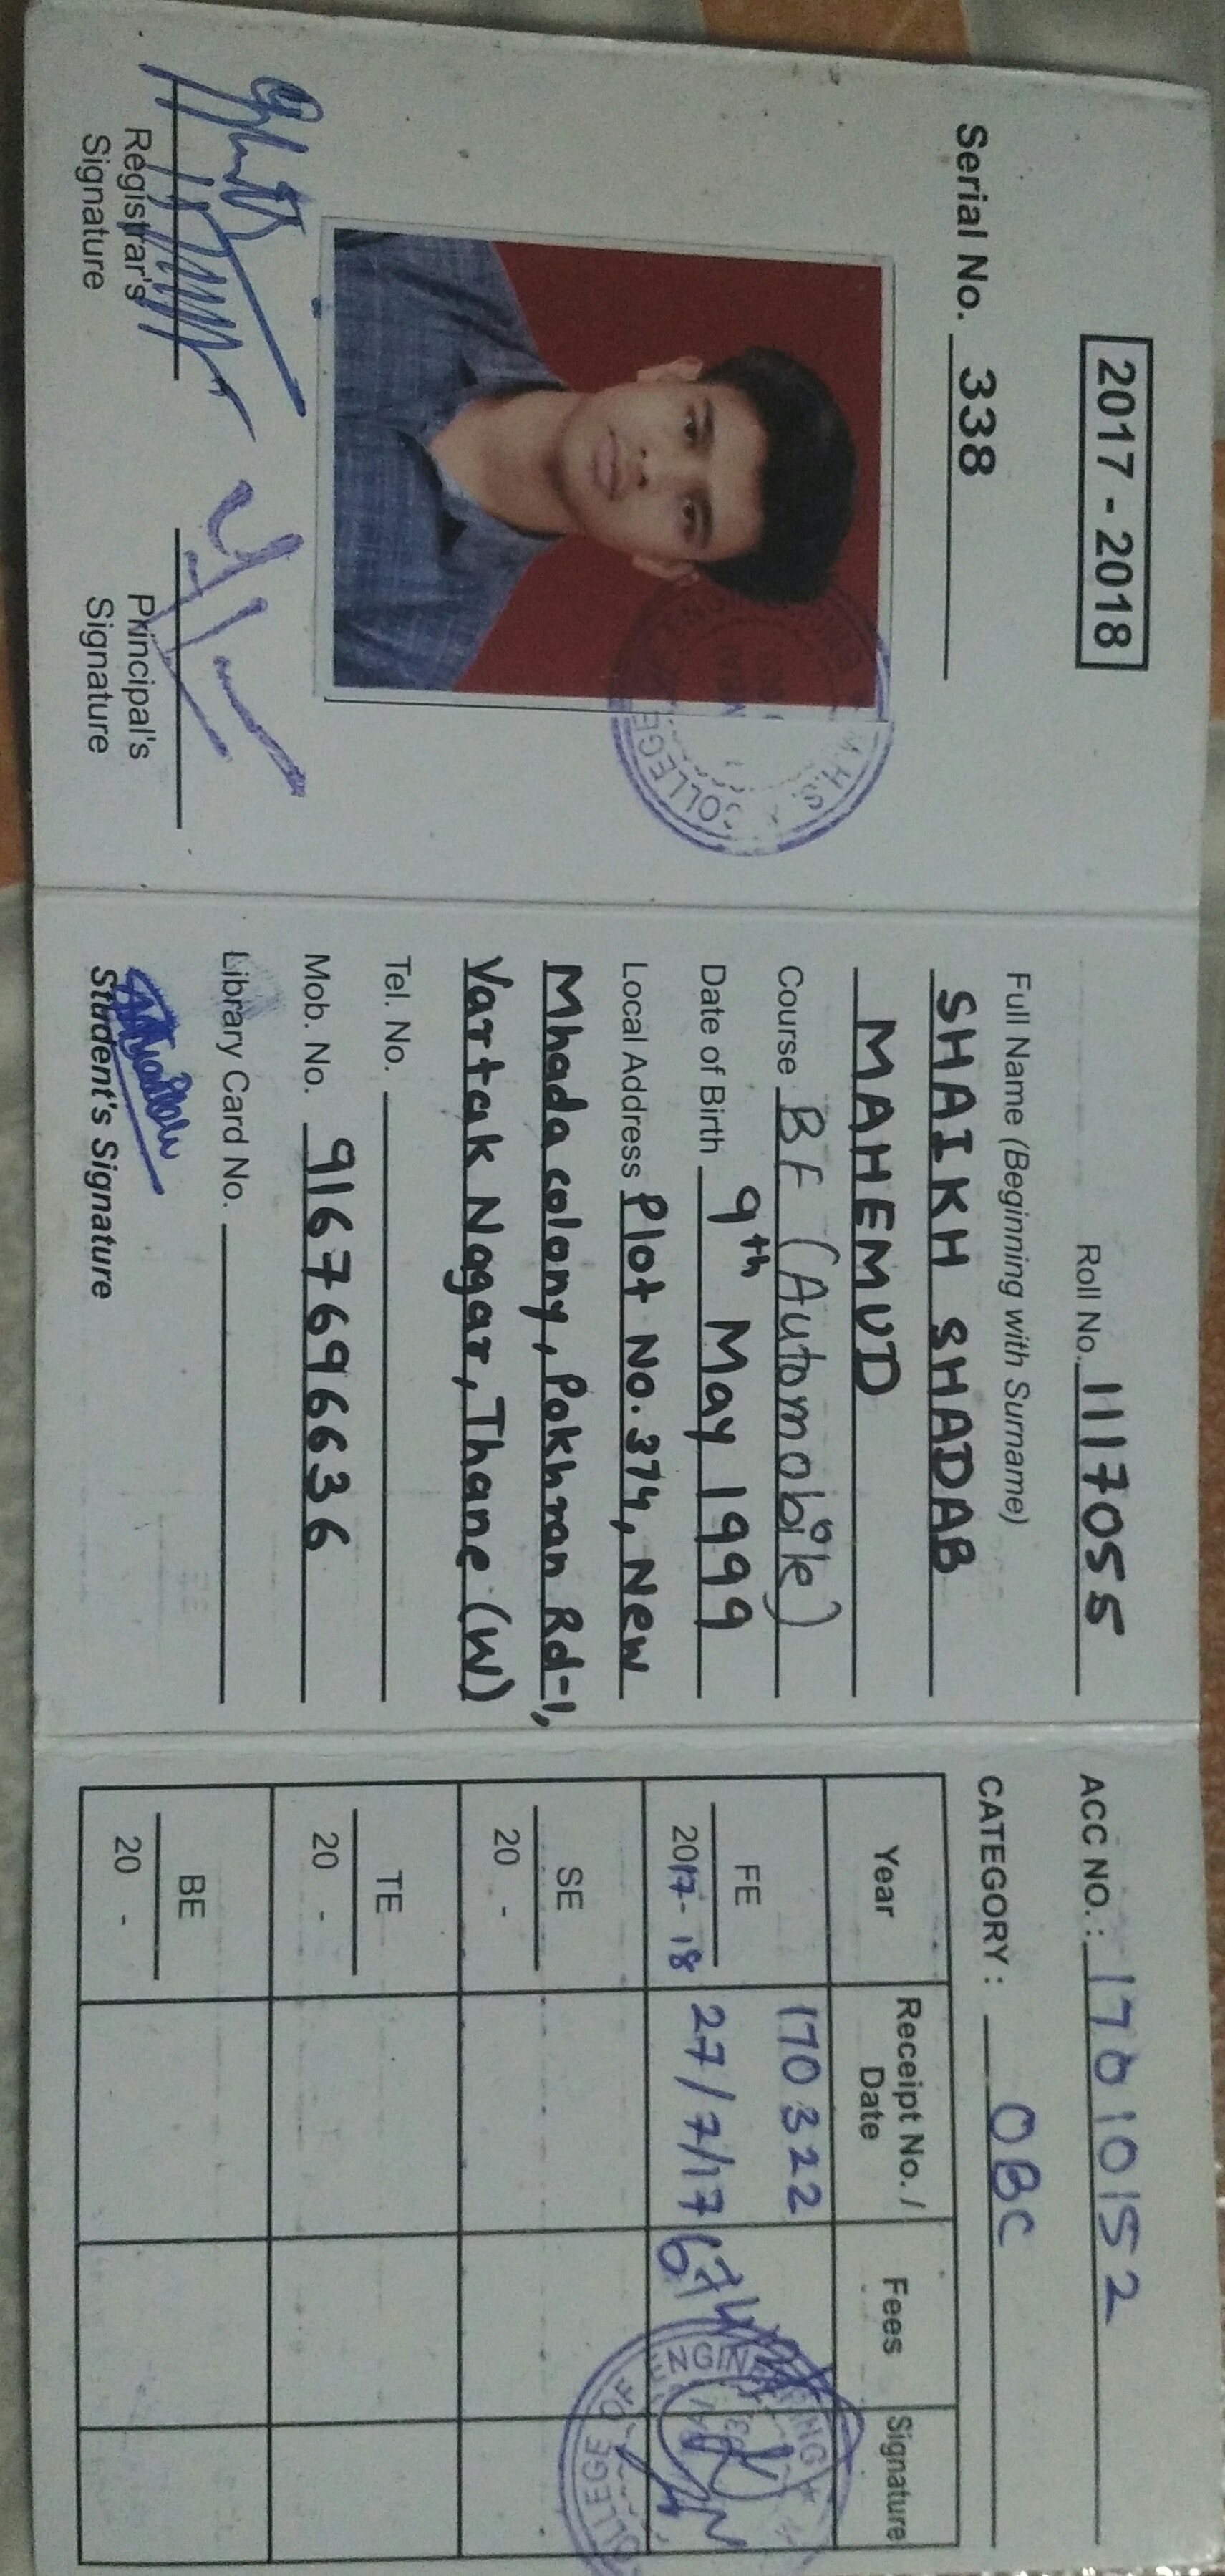 2017 - 2018
Serial No. 338
M.H.S.S.
COLLEGE
Registrar's
Signature
Principal's
Signature
Roll No. 1117055
Full Name (Beginning with Surname)
SHAIKH SHADAB
MAHEMUD
Course BE (Automobile)
Date of Birth 9th May 1999
Local Address Plot No. 374, New
Mhada colony, Pokhran Rd-1,
Vartak Nagar, Thane (W)
Tel. No.
Mob. No. 9167696636
Library Card No.
Student's Signature
ACC NO. : 17010152
CATEGORY : OBC
Year Receipt No. / Date Fees Signature
FE 170322
2017-18 27/7/17
SE
20 -
TE
20 -
BE
20 -
COLLEGE OF ENGINEERING